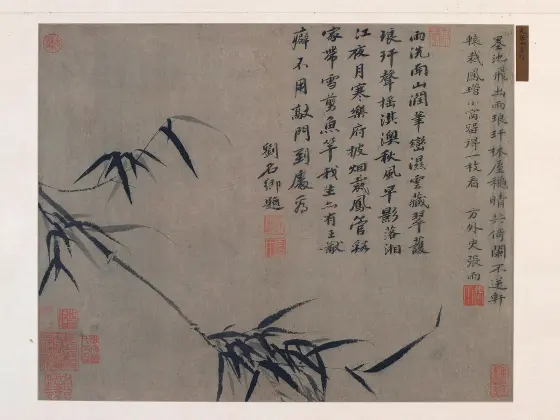 墨池飛出雨琅玕林屋穐晴共倚闌不逐軒
轅裁鳳琯小窗留得一枝看 方外史張雨
雨洗南山潤巒濕雲藏翠護
琅玕聲搖淇澳秋風早影落湘
江夜月寒樂府披烟裁鳳管
家帶雪剪魚竿我生亦有王猷
癖不用敲門到處看
劉石卿題